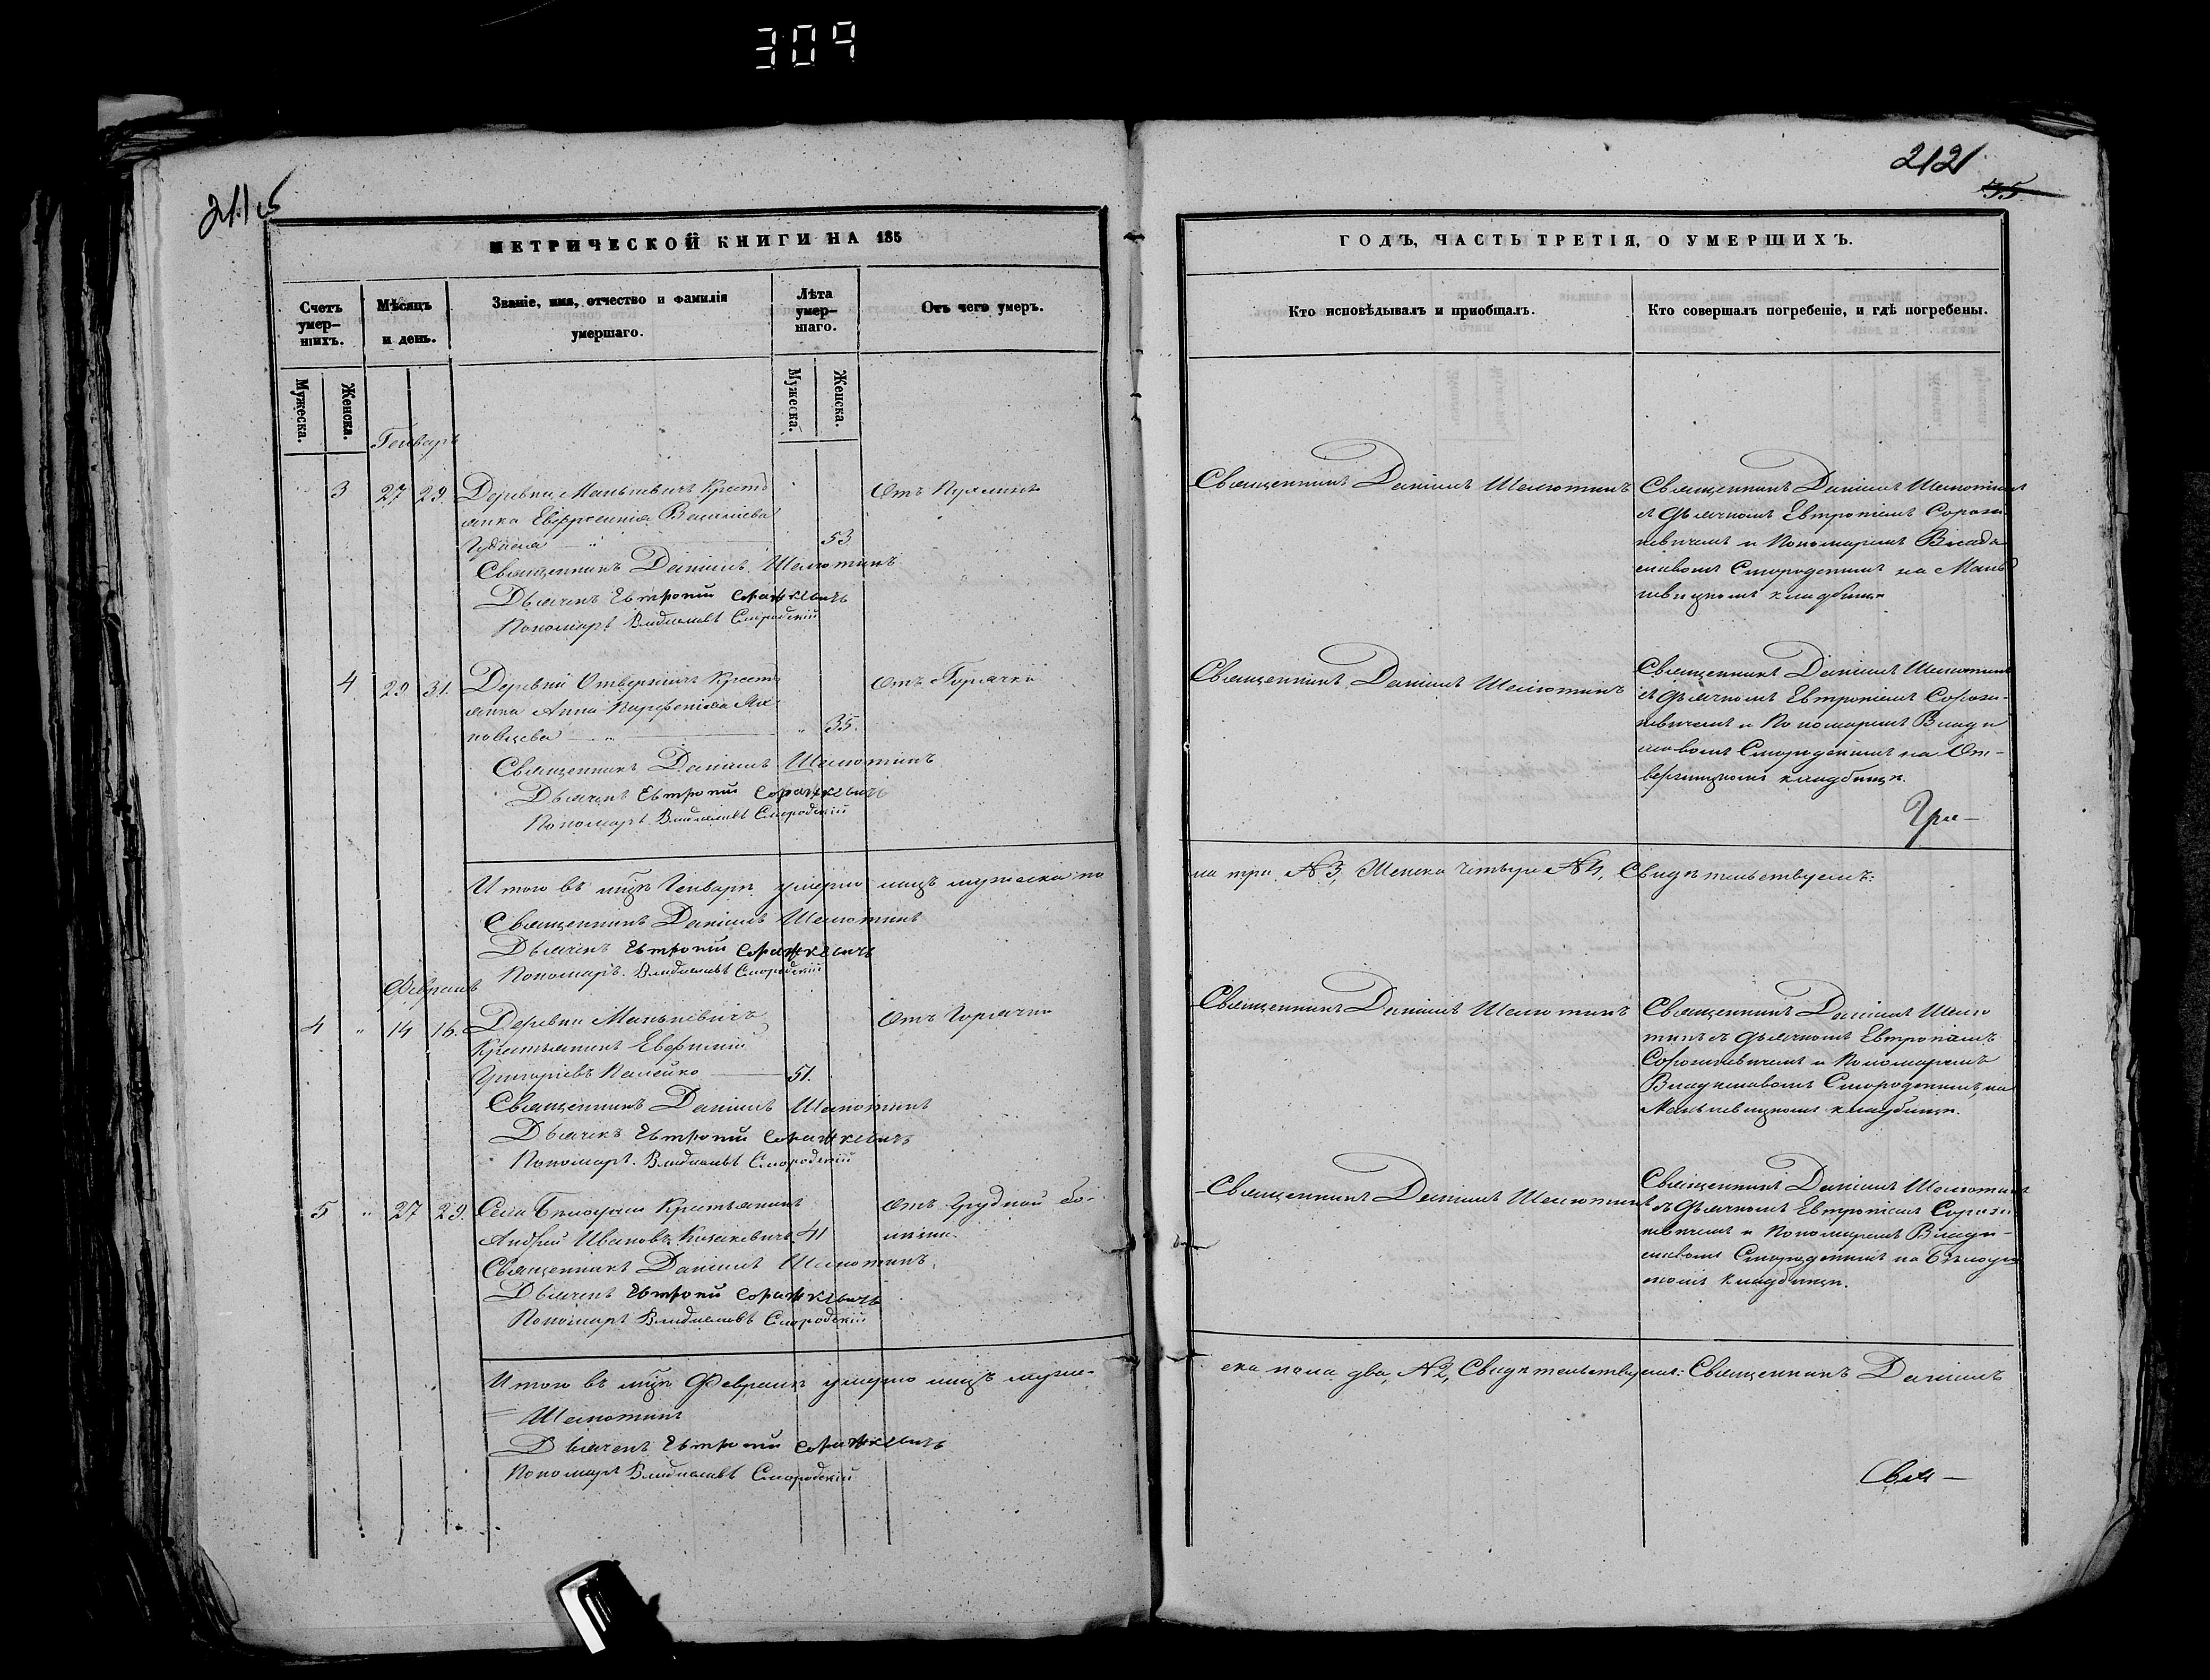 309
212
35
МЕТРИЧЕСКОЙ КНИГИ НА 185
Счетъ умер-шихъ.
Мѣсяцъ и день.
Званіе, имя, отчество и фамилія умершаго.
Лѣта умер-шаго.
Отъ чего умеръ.
Мужеска.
Женска.
Мужеска.
Женска.
Генварь
3 27 29. Деревни Манькевичъ Кресть
янка Евфросинія Василіева
53.
Священникъ Даніилъ Шелютинъ
Дьячекъ Евтропій Соражкевичъ
Пономарь Владиславъ Смородскій
4 29 31. Деревни Отвержичъ Кресть
янка Анна Парфеніева
35.
Отъ Горячки
Священникъ Даніилъ Шелютинъ
Дьячекъ Евтропій Соражкевичъ
Пономарь Владиславъ Смородскій
Итого въ мцѣ Генварѣ умерло лицъ мужеска по
Священникъ Даніилъ Шелютинъ
Дьячекъ Евтропій Соражкевичъ
Пономарь Владиславъ Смородскій
Февраль
4 " 14 16. Деревни Манькевичъ
Отъ Горячки
Крестьянинъ Евфимій
Григоріевъ Палейко 51.
Священникъ Даніилъ Шелютинъ
Дьячекъ Евтропій Соражкевичъ
Пономарь Владиславъ Смородскій
5 " 27 29. Села Бѣлоуши Крестьянинъ
Отъ Грудной бо-
Андрей Ивановъ Казакевичъ 41
лѣзни.
Священникъ Даніилъ Шелютинъ
Дьячекъ Евтропій Соражкевичъ
Пономарь Владиславъ Смородскій
Итого въ мцѣ Февралѣ умерло лицъ муже-
Шелютинъ
Дьячекъ Евтропій Соражкевичъ
Пономарь Владиславъ Смородскій
ГОДЪ, ЧАСТЬ ТРЕТІЯ, О УМЕРШИХЪ.
Кто исповѣдывалъ и пріобщалъ.
Кто совершалъ погребеніе, и гдѣ погребены.
Священникъ Даніилъ Шелютинъ
Священникъ Даніилъ Шелютинъ
съ дьячкомъ Евтропіемъ Сораж-
кевичемъ и Пономаремъ Влади
славомъ Смородскимъ на Мань
кевицкомъ кладбищѣ
Священникъ Даніилъ Шелютинъ
Священникъ Даніилъ Шелютинъ
съ дьячкомъ Евтропіемъ Сораж-
кевичемъ и Пономаремъ Влади
славомъ Смородскимъ на От-
вержицкомъ кладбищѣ.
Три-
ла три №3, Женска четыре №4, Свидѣтельствуемъ:
Священникъ Даніилъ Шелютинъ
Священникъ Даніилъ Шелю
тинъ съ дьячкомъ Евтропіемъ
Соражкевичемъ и Пономаремъ
Владиславомъ Смородскимъ, на
Манькевицкомъ кладбищѣ.
Священникъ Даніилъ Шелютинъ
Священникъ Даніилъ Шелютинъ
съ дьячкомъ Евтропіемъ Сораж
кевичемъ и Пономаремъ Влади-
славомъ Смородскимъ на Бѣлоуш
скомъ кладбищѣ.
ска пола два, №2, Свидѣтельствуемъ: Священникъ Даніилъ
Свя-